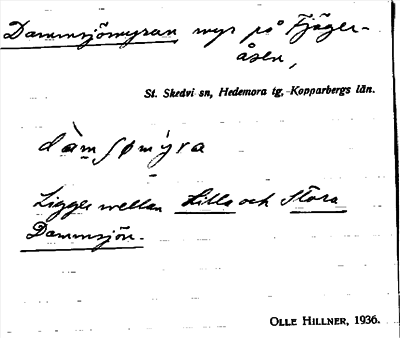 Dammsjömyran myr på Fjäger-
åsen,
St. Skedvi sn, Hedemora tg, Kopparbergs län.
dàmʃømýra
Ligger mellan Lilla och Stora
Dammsjön.
OLLE HILLNER, 1936.